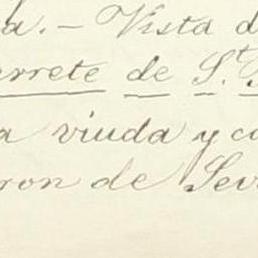 a. — Vista d
arrete de S.
a viuda y co
ron de Sev